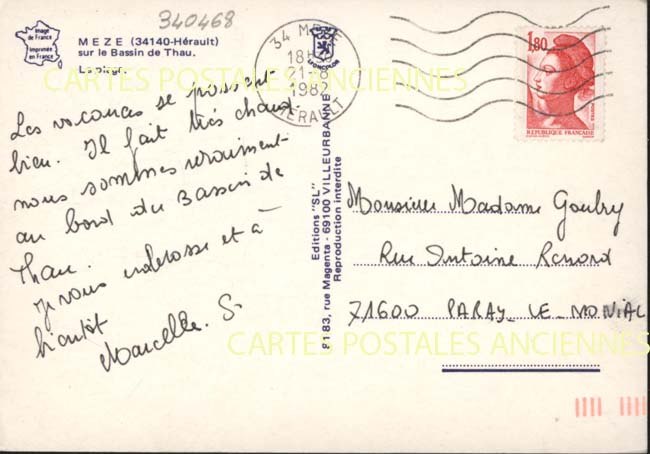 340468
Image
de France
Imprimée
en France
MEZE (34140-Hérault)
sur le Bassin de Thau.
La plage.
CARTES POSTALES ANCIENNES
34 MEZE
18H
21-8
1982
HERAULT
1,80
REPUBLIQUE FRANÇAISE
Les vacances se passent
bien. Il fait très chaud.
nous sommes vraiment
au bord du Bassin de
Thau.
Je vous embrasse et à
bientôt
Marcelle. S.
Editions "SL"
F183, rue Magenta - 69100 VILLEURBANNE
Reproduction interdite
Monsieur Madame Goubry
Rue Antoine Renard
71600 PARAY-LE-MONIAL
CARTES POSTALES ANCIENNES